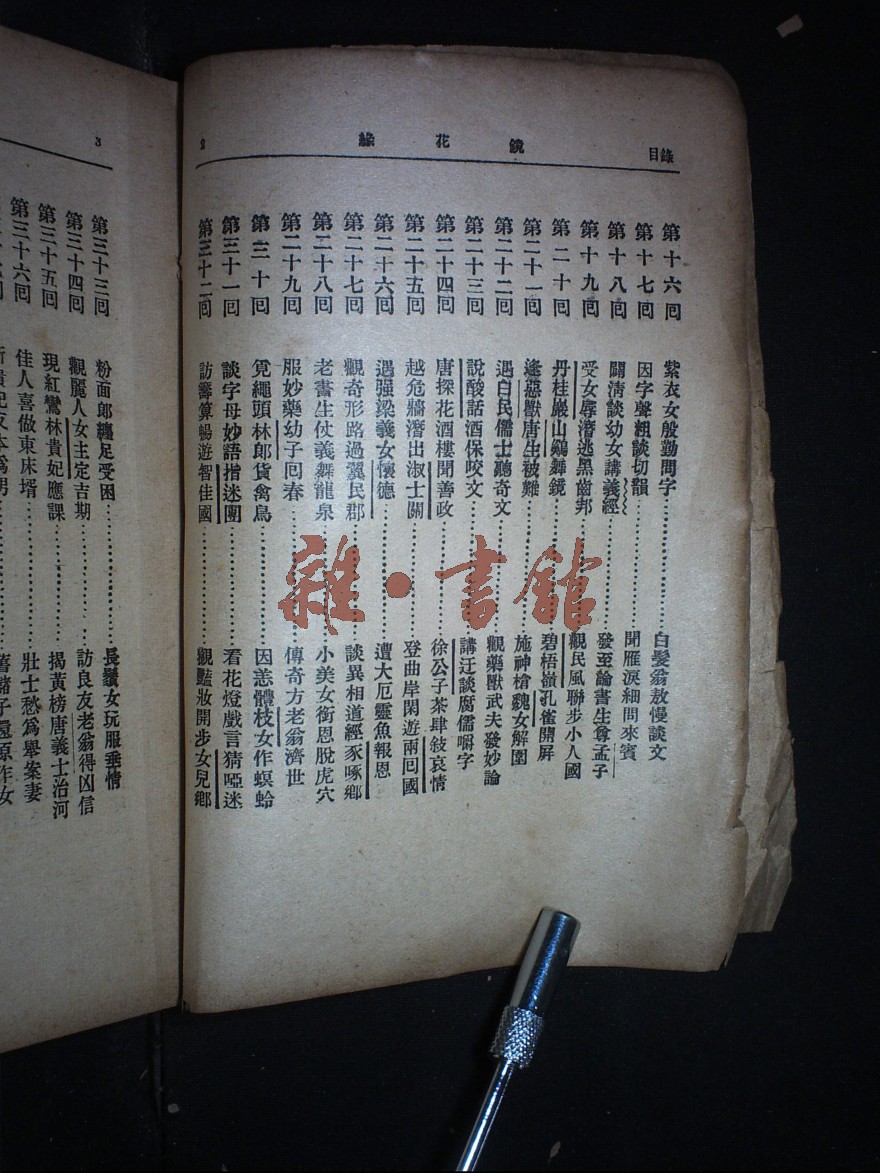 目錄 鏡花緣 2
第十六囘 紫衣女殷勤問字……白髮翁敖慢談文
第十七囘 因字聲粗談切韻……聞雁淚細問來賓
第十八囘 闢清談幼女講義經……發至論書生尊孟子
第十九囘 受女辱潛逃黑齒邦……觀民風聯步小人國
第二十囘 丹桂巖山鷄舞鏡……碧梧嶺孔雀開屏
第二十一囘 逢惡獸唐生被難……施神槍魏女解圍
第二十二囘 遇白民儒士聽奇文……觀藥獸武夫發妙論
第二十三囘 說酸話酒保咬文……講迂談腐儒嚼字
第二十四囘 唐探花酒樓聞善政……徐公子茶肆敍哀情
第二十五囘 越危牆潛出淑士關……登曲岸閑遊兩囘國
第二十六囘 遇强梁義女懷德……遭大厄靈魚報恩
第二十七囘 觀奇形路過翼民郡……談異相道經豕啄鄉
第二十八囘 老書生仗義舞龍泉……小美女銜恩脫虎穴
第二十九囘 服妙藥幼子囘春……傳奇方老翁濟世
第三十囘 覓繩頭林郎貨禽鳥……因恙體枝女作螟蛉
第三十一囘 談字母妙語指迷團……看花燈戲言猜啞迷
第三十二囘 訪籌算暢遊智佳國……觀豔妝閒步女兒鄉
3
第三十三囘 粉面郎纏足受困……長鬚女玩股垂情
第三十四囘 觀麗人女主定吉期……訪良友老翁得凶信
第三十五囘 現紅鸞林貴妃應課……揭黃榜唐義士治河
第三十六囘 佳人喜做東床壻……壯士愁爲舉案妻
雜·書館